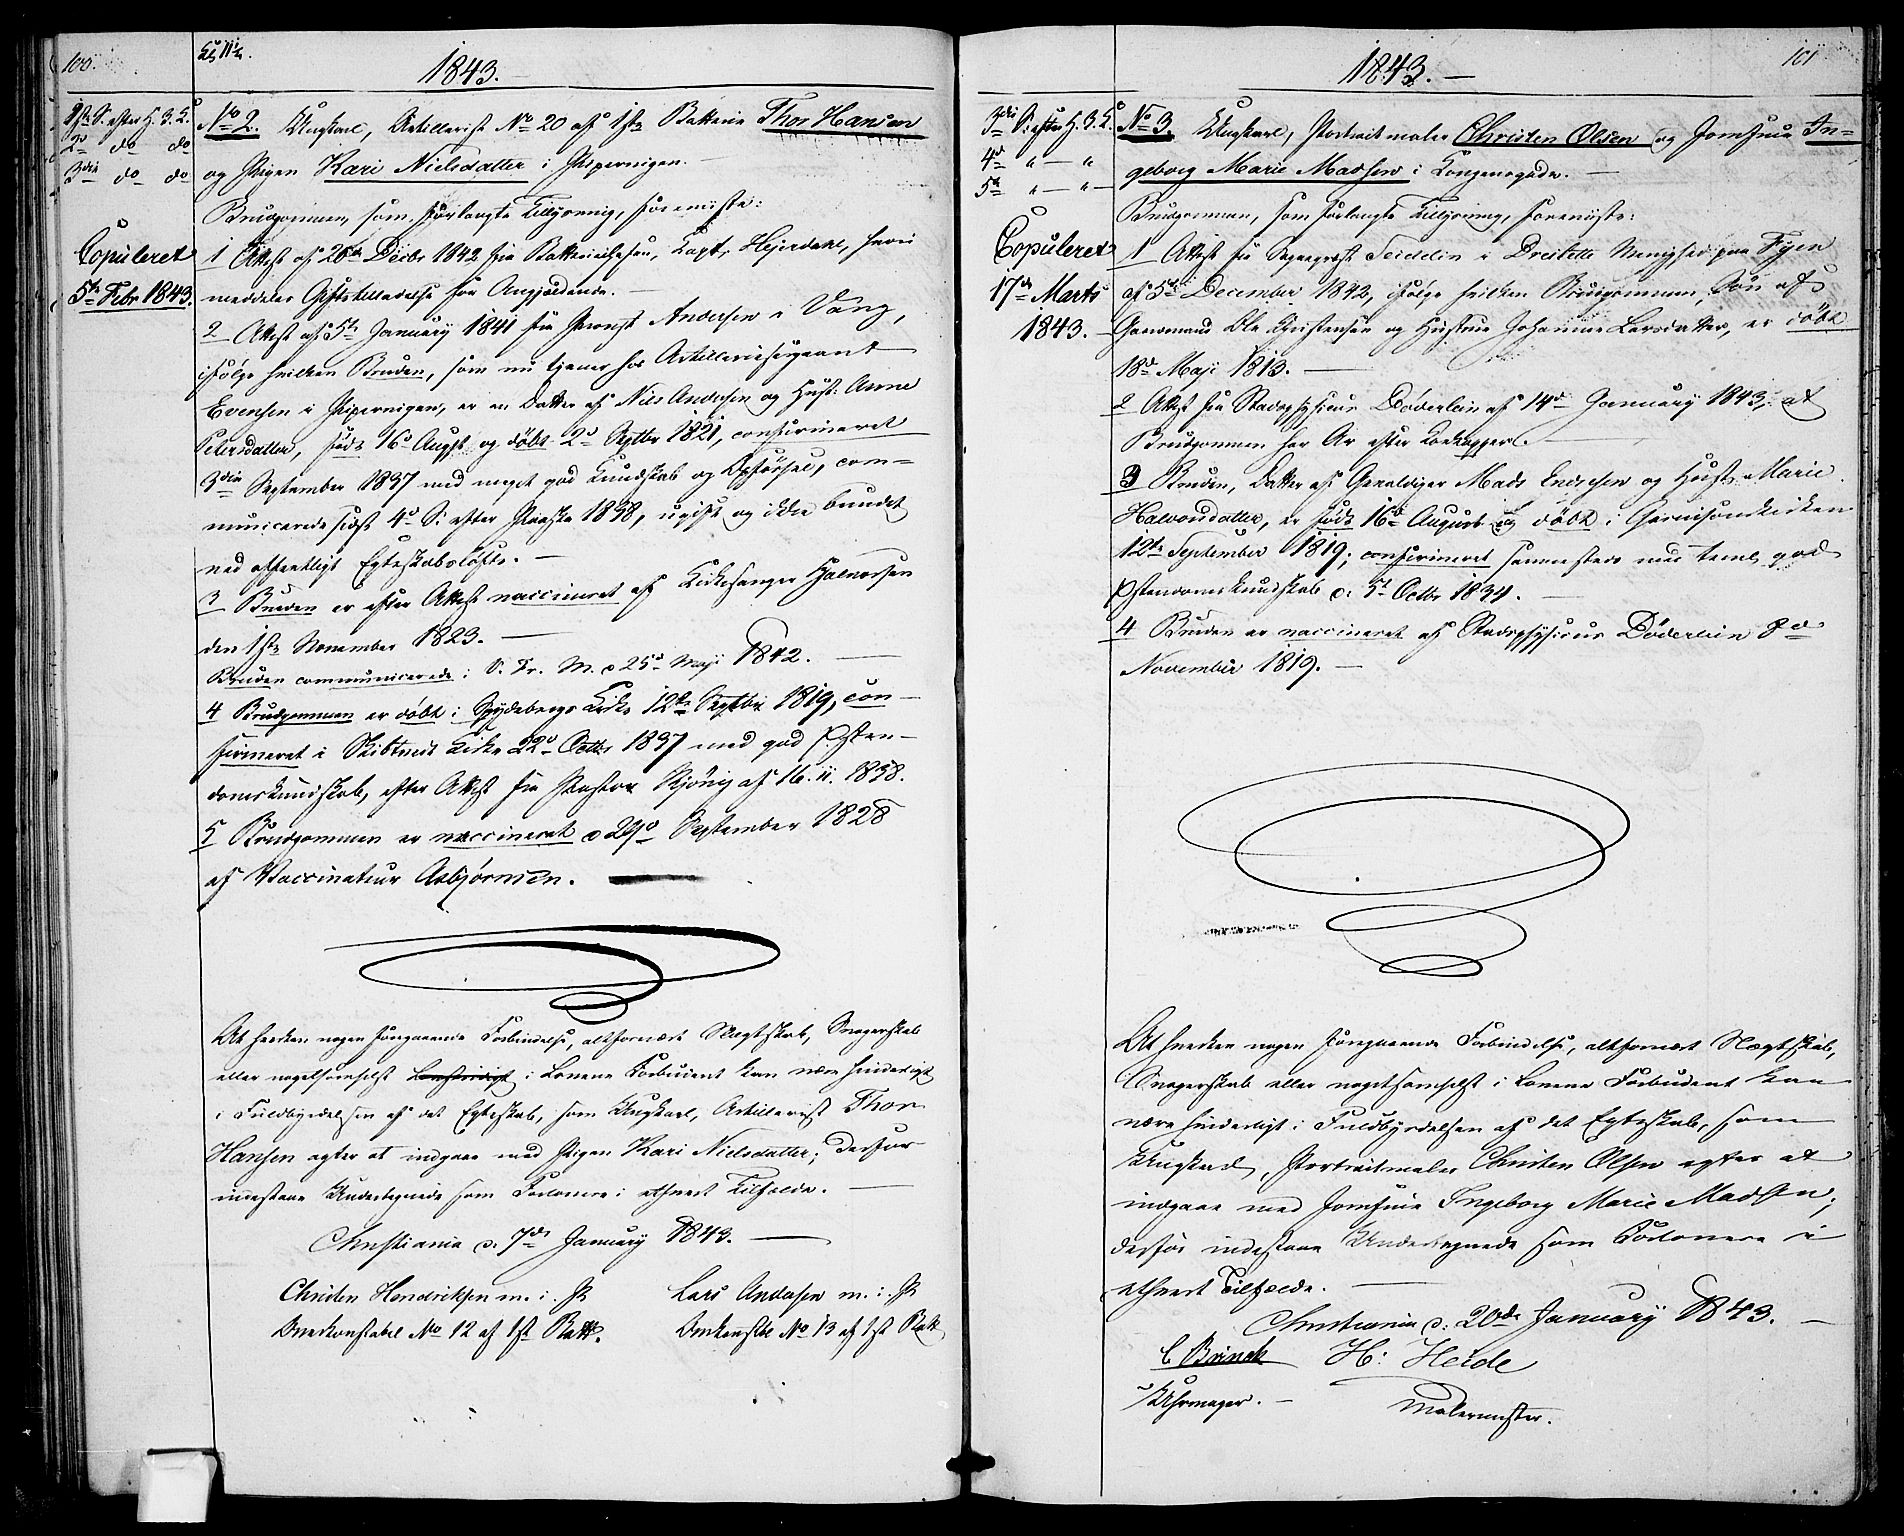 100.
1843.
1ste S. efter H. 3 K.
2d do do
3die do do
Copuleret
5te Febr 1843.
No 2. Ungkarl, Artillerist No 20 af 1ste Batterie Thor Hansen
og Pigen Kari Nielsdatter i Pipervigen.
Brudgommen, som forlangte Tillysning, foreviiste:
1 Attest af 26de Decbr 1842 fra Batteriechefen, Capt. Hejerdahl, hvori
meddeles Giftetilladelse for Angjældende.
2 Attest af 5te January 1841 fra Provst Andersen i Vang,
ifølge hvilken Bruden, som nu tjener hos Artilleriesergeant
Evensen i Pipervigen, er en Datter af Niels Andersen og Hust: Anne
Petersdatter, født 16d August og døbt 2d Septbr 1821, confirmeret
3die September 1837 med meget god Kundskab og Opførsel, com-
municerede sidst 4d S. efter Paaske 1838, ugift og ikke bundet
ved offentligt Egteskabsløfte.
3 Bruden er efter Attest vaccineret af Kirkesanger Halvorsen
den 1ste November 1823.
Bruden communicerede i V. Fr. M. d 25d Maji 1842.
4 Brudgommen er døbt i Spydebergs Kirke 12te Septbr 1819, con-
firmeret i Skibtvedt Kirke 22d Octbr 1837 med god Chsten-
domskundskab, efter Attest fra Pastor Kjønig af 16. 11. 1838.
5 Brudgommen er vaccineret d 29d September 1828
af Vaccinateur Asbjørnsen.
At hverken nogen foregaaende Forbindelse, altfornært Slægtskab, Svogerskab
eller nogetsomhelst i Lovene Forbudent kan være hinderligt
i Fuldbyrdelsen af det Egteskab, som Ungkarl, Artillerist Thor
Hansen agter at indgaae med Pigen Kari Nielsdatter; derfor
indestaae Undertegnede som Forlovere i ethvert Tilfælde.
Christiania d. 7de January 1843.
Christen Hendriksen m. i. P Lars Andersen m. i. P
Overkonstabel No 12 af 1st Batt. Overkonstbl No 13 af 1st Batt
101
1843.
3die S. efter H. 3 K.
4d " — "
5te " — " —
Copuleret
17de Marts
1843.
No 3. Ungkarl, Portraitmaler Christen Olsen og Jomfrue In-
geborg Marie Madsen i Kongensgade.
Brudgommen, som forlangte Tillysning, foreviiste:
1 Attest fra Sognepræst Seidelin i Dreslette Menighed paa Fyen
af 5te December 1842, ifølge hvilken Brudgommen, Søn af
Gaardmand Ole Christensen og Hustrue Johanne Larsdatter, er døbt
18d Maji 1813.
2 Attest fra Stadsphysicus Döderlein af 14de January 1843, at
Brudgommen har Ar efter Koekopper.
3 Bruden, Datter af Gevaldiger Mads Endresen og Hust. Marie
Halvorsdatter, er født 16d August og døbt i Garnisonskirken
12te September 1819; confirmeret sammesteds med teml. god
Chstendomskundskab d. 5t Octbr 1834.
4 Bruden er vaccineret af Stadsphysicus Döderlein 8de
November 1819.
At hverken nogen foregaaende Forbindelse, altfornært Slægtskab,
Svogerskab eller nogetsomhelst i Lovene Forbudent kan
være hinderligt i Fuldbyrdelsen af det Egteskab, som
Ungkarl, Portraitmaler Christen Olsen agter at
indgaae med Jomfrue Ingeborg Marie Madsen;
derfor indestaae Undertegnede som Forlovere i
ethvert Tilfælde.
Christiania d. 20de January 1843.
C Brinck H: Heide
Uhrmager. Malermester.